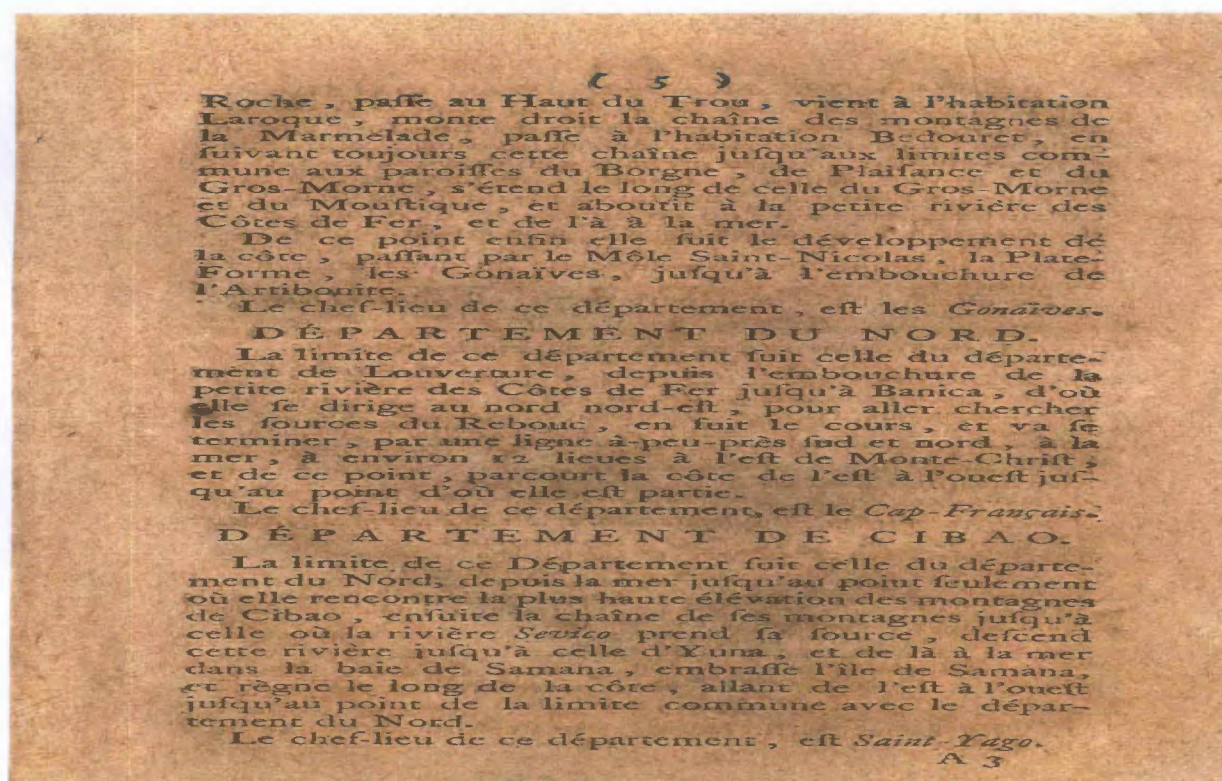 ( 5 )
Roche, paſſe au Haut du Trou, vient à l'habitation
Laroque, monte droit la chaîne des montagnes de
la Marmelade, paſſe à l'habitation Bedouret, en
ſuivant toujours cette chaîne juſqu'aux limites com-
mune aux paroiſſes du Borgne, de Plaiſance et du
Gros-Morne, s'étend le long de celle du Gros-Morne
et du Mouſtique, et aboutit à la petite rivière des
Côtes de Fer, et de l'à à la mer.
De ce point enfin elle ſuit le développement de
la côte, paſſant par le Môle Saint-Nicolas, la Plate-
Forme, les Gonaïves, juſqu'à l'embouchure de
l'Artibonite.
Le chef-lieu de ce département, eſt les Gonaïves.
DÉPARTEMENT DU NORD.
La limite de ce département ſuit celle du départe-
ment de Louverture, depuis l'embouchure de la
petite rivière des Côtes de Fer juſqu'à Banica, d'où
elle ſe dirige au nord nord-eſt, pour aller chercher
les ſources du Rebouc, en ſuit le cours, et va ſe
terminer, par une ligne à-peu-près ſud et nord, à la
mer, à environ 12 lieues à l'eſt de Monte-Chriſt,
et de ce point, parcourt la côte de l'eſt à l'oueſt juſ-
qu'au point d'où elle eſt partie.
Le chef-lieu de ce département, eſt le Cap-Français.
DÉPARTEMENT DE CIBAO.
La limite de ce Département ſuit celle du départe-
ment du Nord, depuis la mer juſqu'au point ſeulement
où elle rencontre la plus haute élévation des montagnes
de Cibao, enſuite la chaîne de ſes montagnes juſqu'à
celle où la rivière Sevico prend ſa ſource, deſcend
cette rivière juſqu'à celle d'Yuna, et de là à la mer
dans la baie de Samana, embraſſe l'île de Samana,
et règne le long de la côte, allant de l'eſt à l'oueſt
juſqu'au point de la limite commune avec le dépar-
tement du Nord.
Le chef-lieu de ce département, eſt Saint-Yago.
A 3